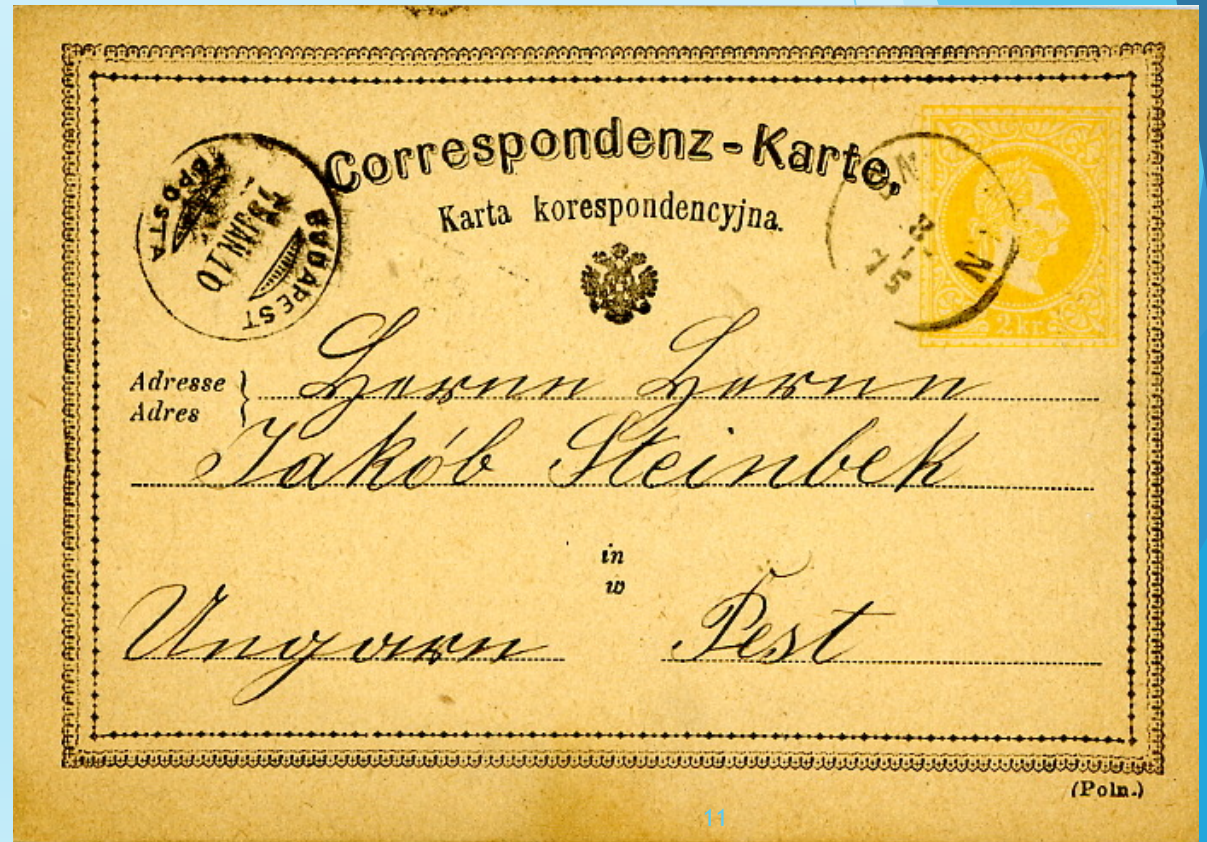 Correspondenz-Karte,
Karta korespondencyjna.
BUDAPEST
JAN 10
POSTA
2 kr.
Adresse } Herrn Herrn
Adres
Jakób Steinbek
in
w
Ungarn Pest
(Poln.)
11